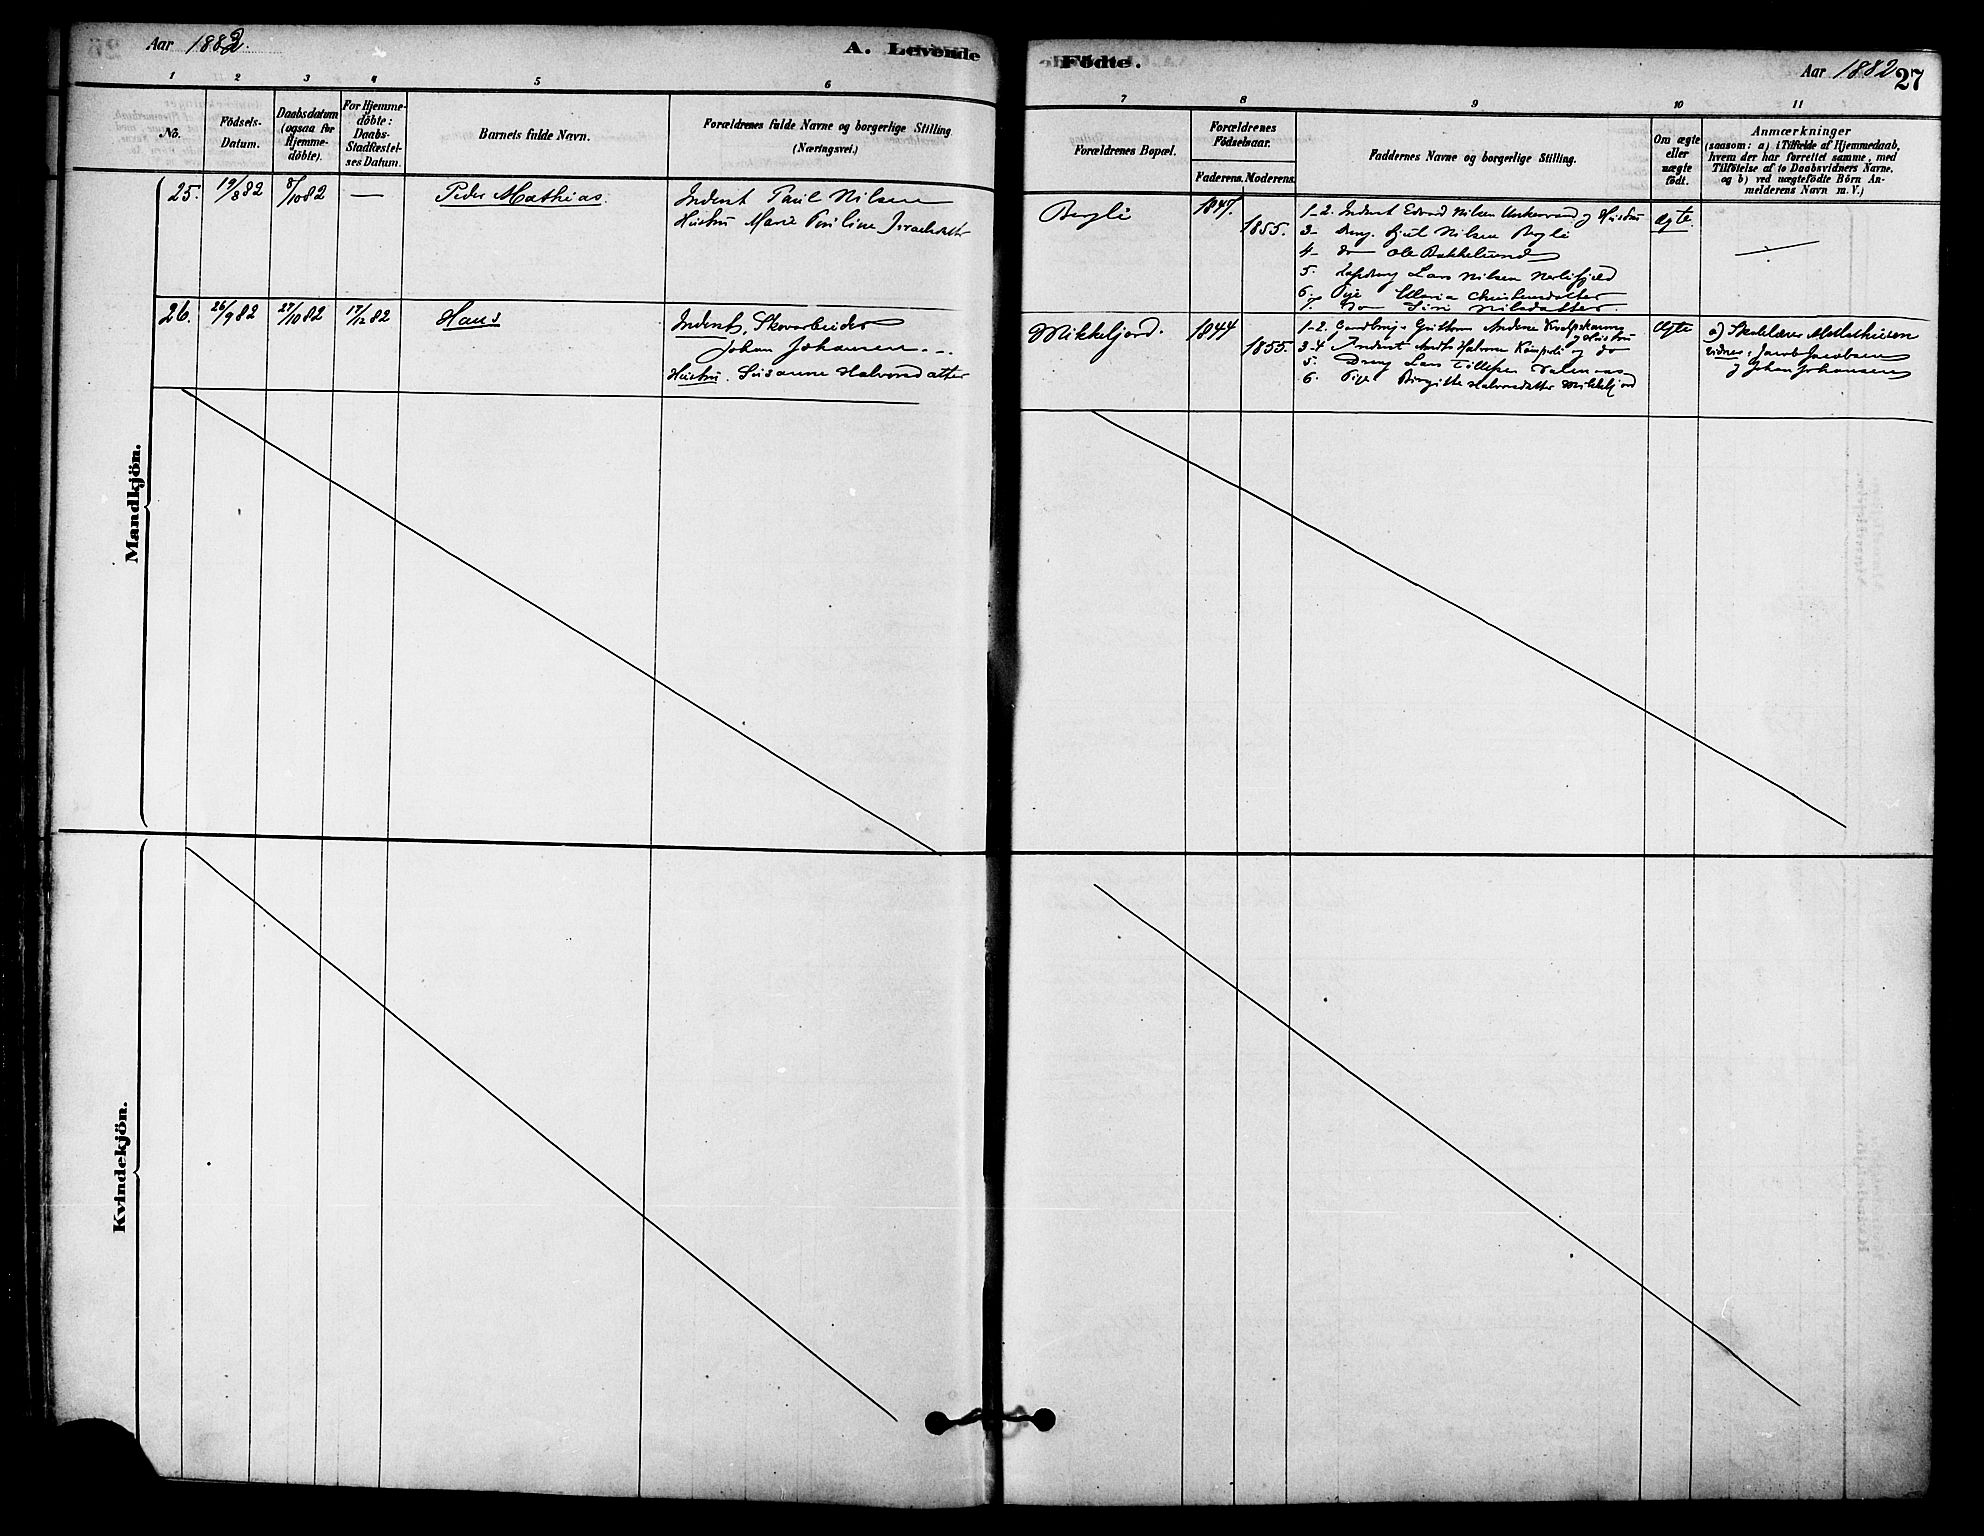 Aar 1882.
A. Levende
Födte.
Aar 1882
27
1 2 3 4 5 6
7 8 9 10 11
No.
Födsels-
Datum.
Daabsdatum
(ogsaa for
Hjemme-
döbte).
For Hjemme-
döbte:
Daabs-
Stadfæstel-
ses Datum.
Barnets fulde Navn.
Forældrenes fulde Navne og borgerlige Stilling
(Næringsvei.)
Forældrenes Bopæl.
Forældrenes
Födselsaar.
Faderens. Moderens.
Faddernes Navne og borgerlige Stilling.
Om ægte
eller
uægte
födt.
Anmærkninger
(saasom: a) i Tilfælde af Hjemmedaab,
hvem der har forrettet samme, med
Tilföielse af to Daabsvidners Navne,
og b) ved uægtefödte Börn An-
melderens Navn m. V.)
Mandkjön.
25. 19/8 82 8/10 82 — Peder Mathias.
Inderst Paul Nilsen
Hustru Marie Pauline Israelsdatter
Bergli
1847.
1855.
1-2. Inderst Edvard Nilsen og Hustru
3- Dreng Nilsen Bergli
4- do Ole Bakkelund
5. Lars Nilsen
6. Pige Maria Christensdatter
7. do Siri Nilsdatter
Ægte.
26. 26/9 82 27/10 82 17/12 82 Hans
Inderst, Skovarbeider
Johan Johansen
Hustru Susanne Halvorsdatter
Mikkeljord.
1844
1855.
1-2. Andersen og Hustru
3-4 Inderst Halvorsen og do
5. Dreng Lars
6. Pige Birgitte Halvorsdatter Mikkeljord
Ægte
a) Skolelærer
vidner, Jacob Jacobsen
og Johan Johansen
Kvindekjön.